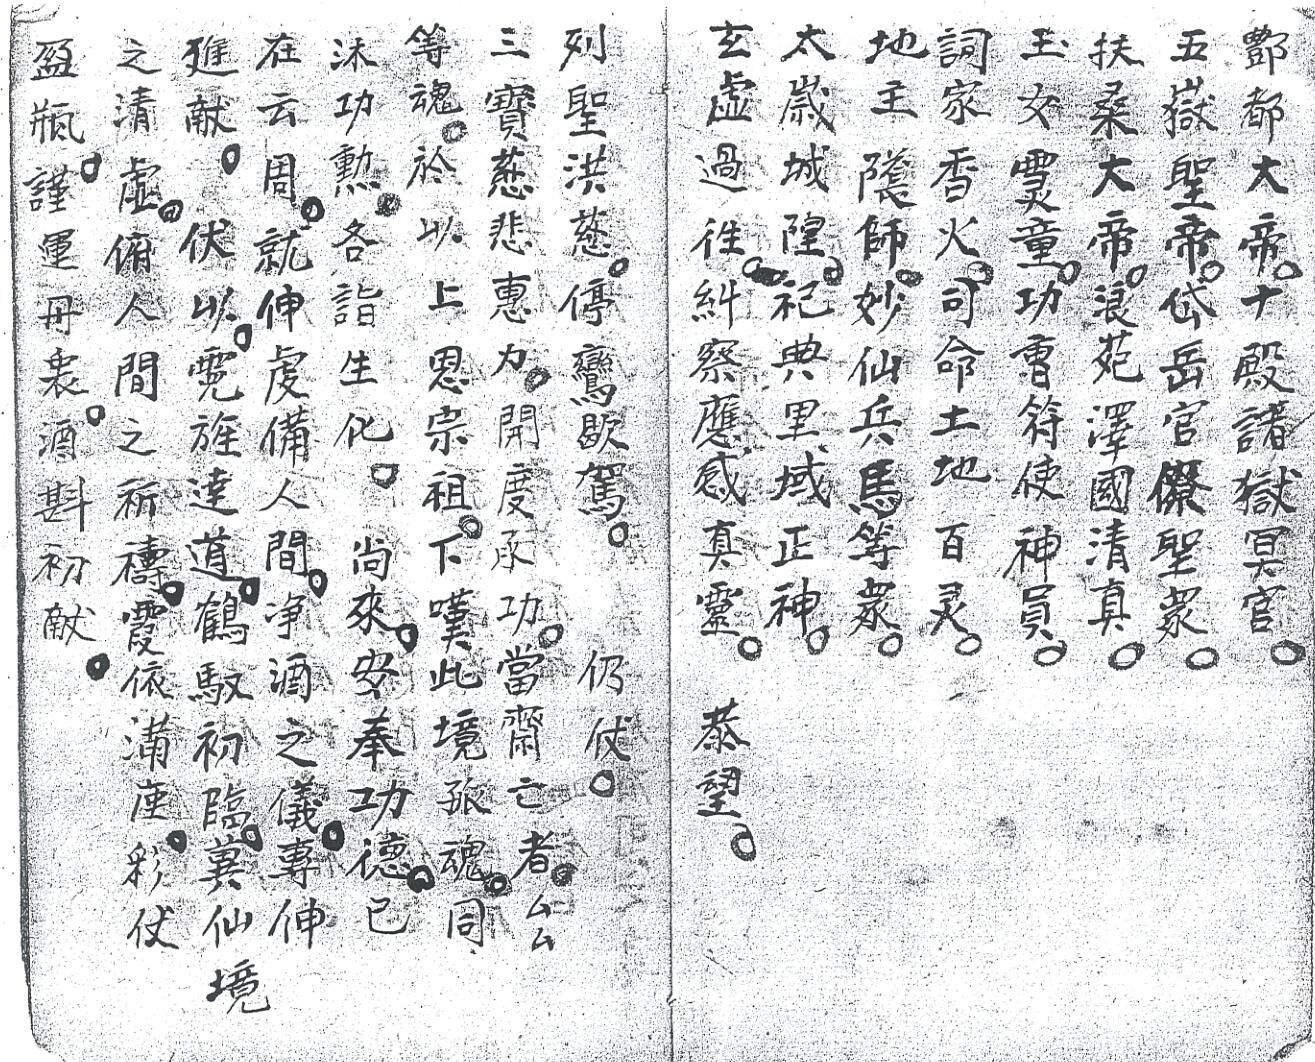 酆都大帝。十殿諸獄冥官。
五嶽聖帝。岱岳官僚聖衆。
扶桑大帝。浪苑澤國清真。
玉女霊童。功曹符使神員。
詞家香火。司命土地百灵。
地主隂師。妙仙兵馬等衆。
太歲城隍。祀典里域正神。
玄虛過徃。糾察應感真靈。恭望。
列聖洪慈。停鸞歇駕。仍仗。
三寶慈悲惠力。開度承功。當齋亡者。厶厶
等魂。於以上恩宗祖。下嘆此境孤魂。同
沐功勲。各詣生化。尚來。安奉功德。已
在云周。就伸虔備人間。净酒之儀。專伸
進献。伏以。霓旌達道。鶴馭初臨。莫仙境
之清虛。俯人間之祈禱。霞依滿座。彩仗
盈瓶。謹運丹衷。酒斟初献。